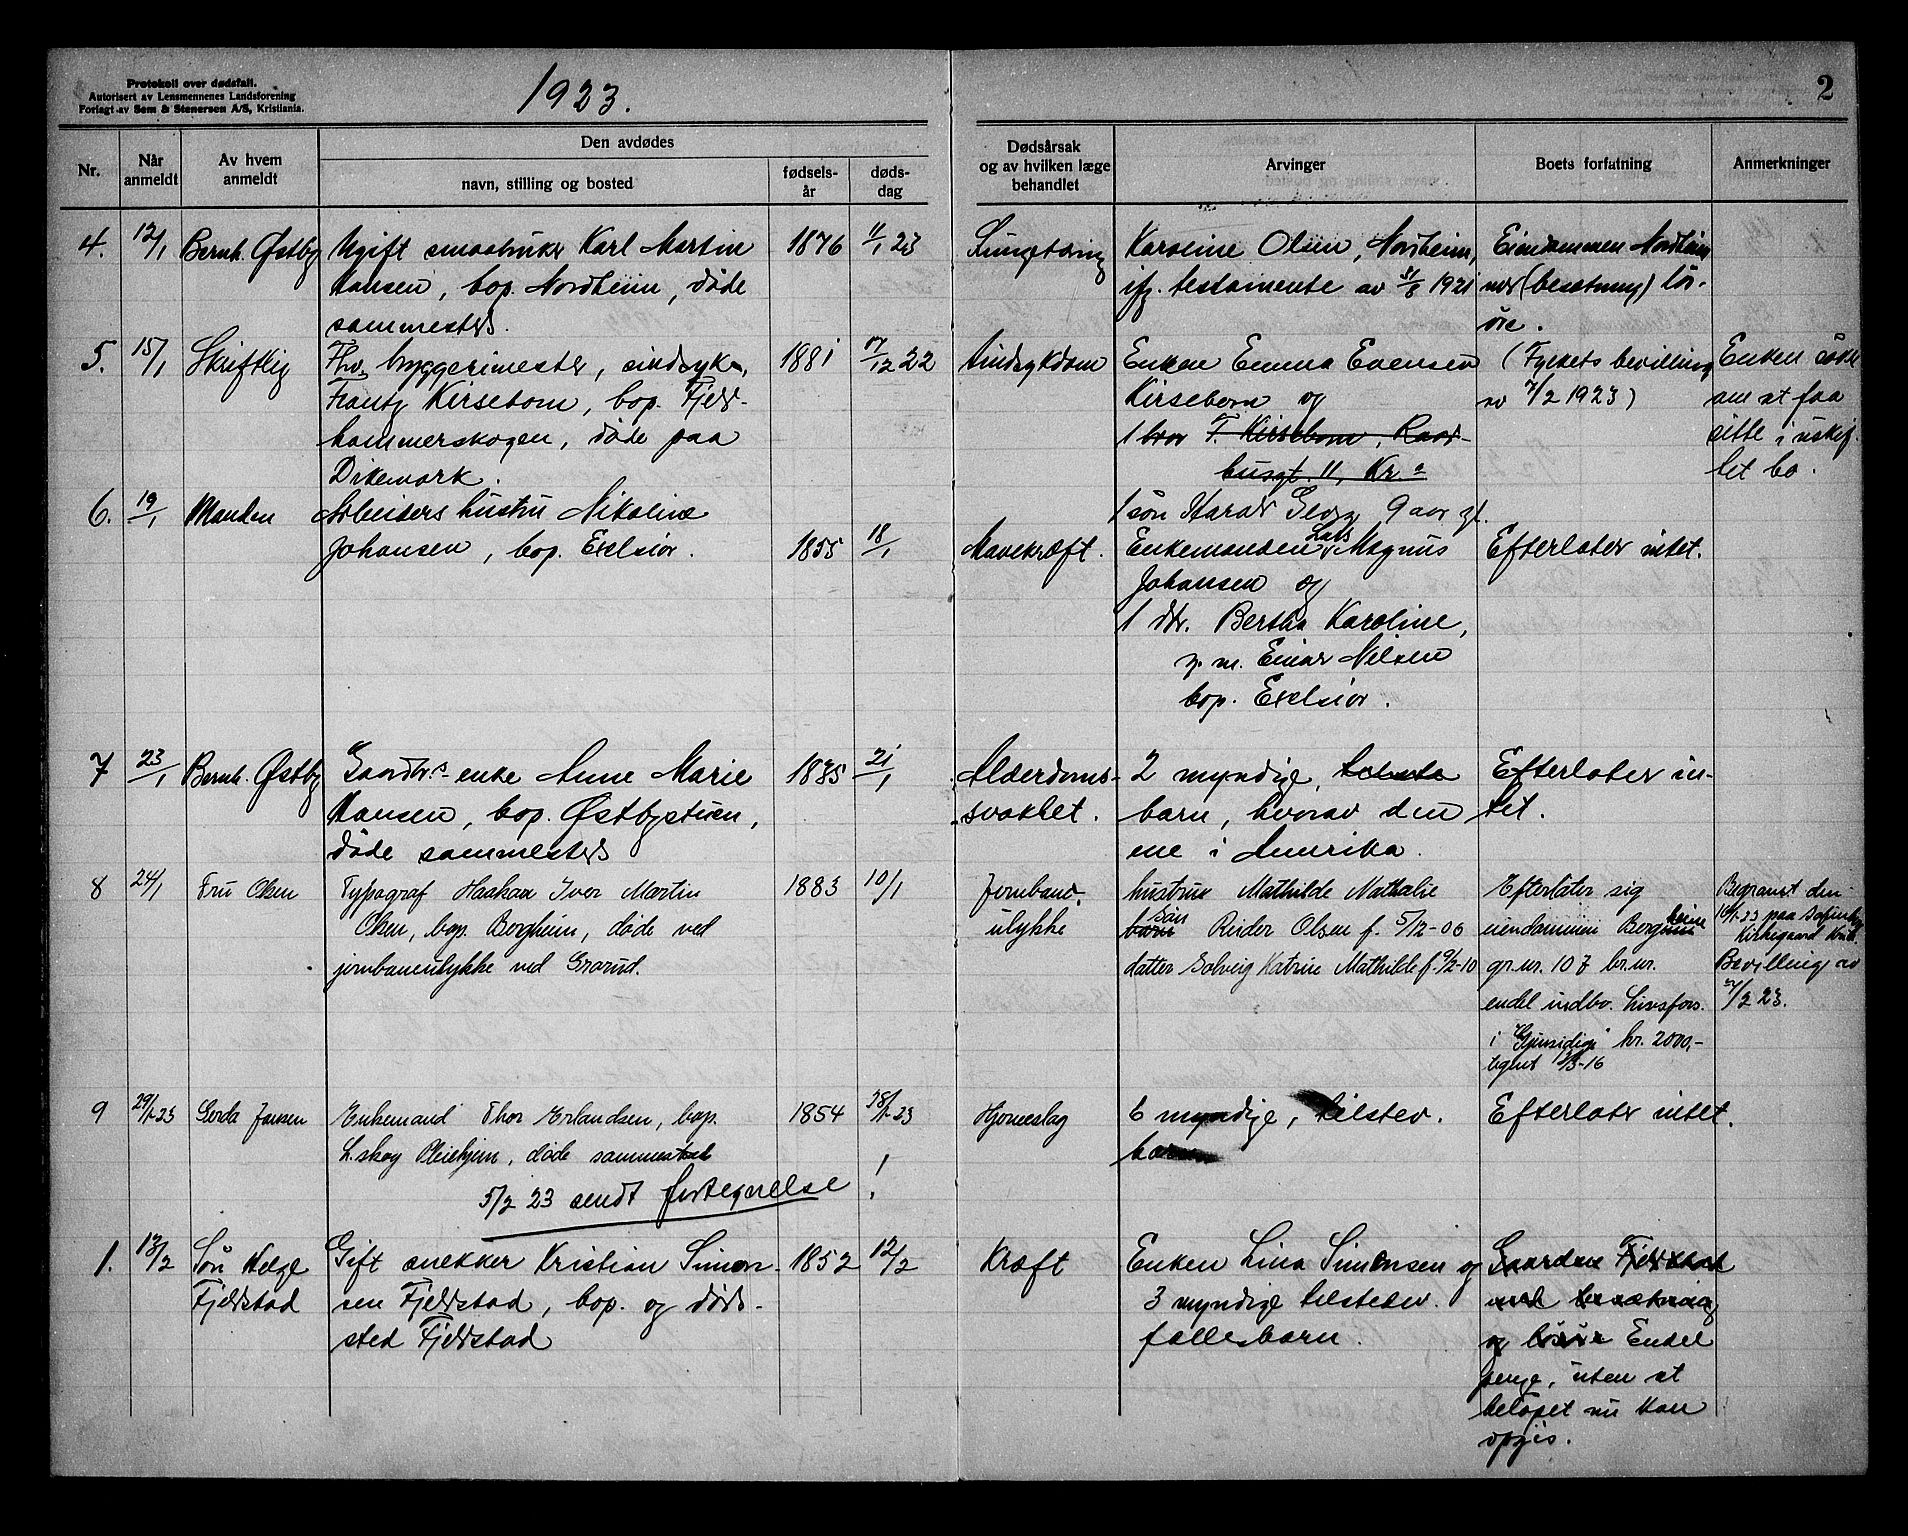 Protokoll over dødsfall.
Autorisert av Lensmennenes Landsforening
Forlagt av Sem & Stenersen A/S, Kristiania.
1923.
2
Nr.
Når anmeldt
Av hvem anmeldt
Den avdødes
navn, stilling og bosted
fødsels-år
døds-dag
Dødsårsak og av hvilken læge behandlet
Arvinger
Boets forfatning
Anmerkninger
4. 12/1 Bernh. Østby Ugift smaabruker Karl Martin 1876 11/1 23 Lungetæring Karoline Olsen, Nordheim, Eiendommen Nordheim
Hansen, bop. Nordheim, døde ifg. testamente av 31/8 1921 med (besætning) løs-
sammesteds. øre.
5. 15/1 Skriftlig Fhv. byggerimester, sindsyk, 1881 17/12 22 Sindsykdom Enken Emma Evensen (Fylkets bevilling Enken søkt
Frantz Kirsebom, bop. Fjeld- Kirsebom og av 7/2 1923) om at faa
hammerskogen, døde paa 1 bror F. Kirsebom, Raad- sitte i uskif-
Dikemark. husgt. 11, Kr.a tet bo.
6. 19/1 Manden Arbeiders hustru Nikoline 1 søn Harald Georg 9 aar gl.
Johansen, bop. Exelsior. 1855 18/1 Mavekræft. Enkemanden Lars Magnus Efterlater intet.
Johansen og
1 dtr. Bertha Karoline,
g. m. Einar Nilsen
bop. Exelsior.
7 23/1 Bernh. Østby Gaardbr.s enke Anne Marie 1835 21/1 Alderdoms- 2 myndige, Efterlater in-
Hansen, bop. Østbystuen, svakhet. barn, hvorav den tet.
døde sammesteds ene i Amerika.
8 24/1 Fru Olsen Typograf Haakon Iver Martin 1883 10/1 Jernbane- hustrue Mathilde Nathalie Efterlater sig Begravet den
Olsen, bop. Borgheim, døde ved ulykke barn søn Reider Olsen f. 5/12-06 eiendommen Borgheim 16/1-23 paa
jernbaneulykke ved Grorud. datter Solveig Katrine Mathilde f. 9/2-10 gr.nr. 107 br.nr. Kirkegaard
endel indbo. Livsfors. Bevilling av
i "Gjensidige" kr. 2000,- 27/2 23.
tegnet 13/3-16
9 29/1-23 Gerda Jansen Enkemand Thor Erlandsen, bop. 1854 28/1-23 Hjerneslag 6 myndige, tilstev. Efterlater intet.
L.skog Pleiehjem, døde sammested barn
5/2 23 sendt fortegnelse !
1. 13/2 Søn Helge Gift snekker Kristian Simon- 1852 12/2 Kræft Enken Lina Simensen og Gaarden Fjeldstad
Fjeldstad sen Fjeldstad, bop. og døds- 3 myndige tilstedev. med besætning
sted Fjeldstad fællesbarn. og løsøre Endel
penge, uten at
beløpet nu kan
opgis.